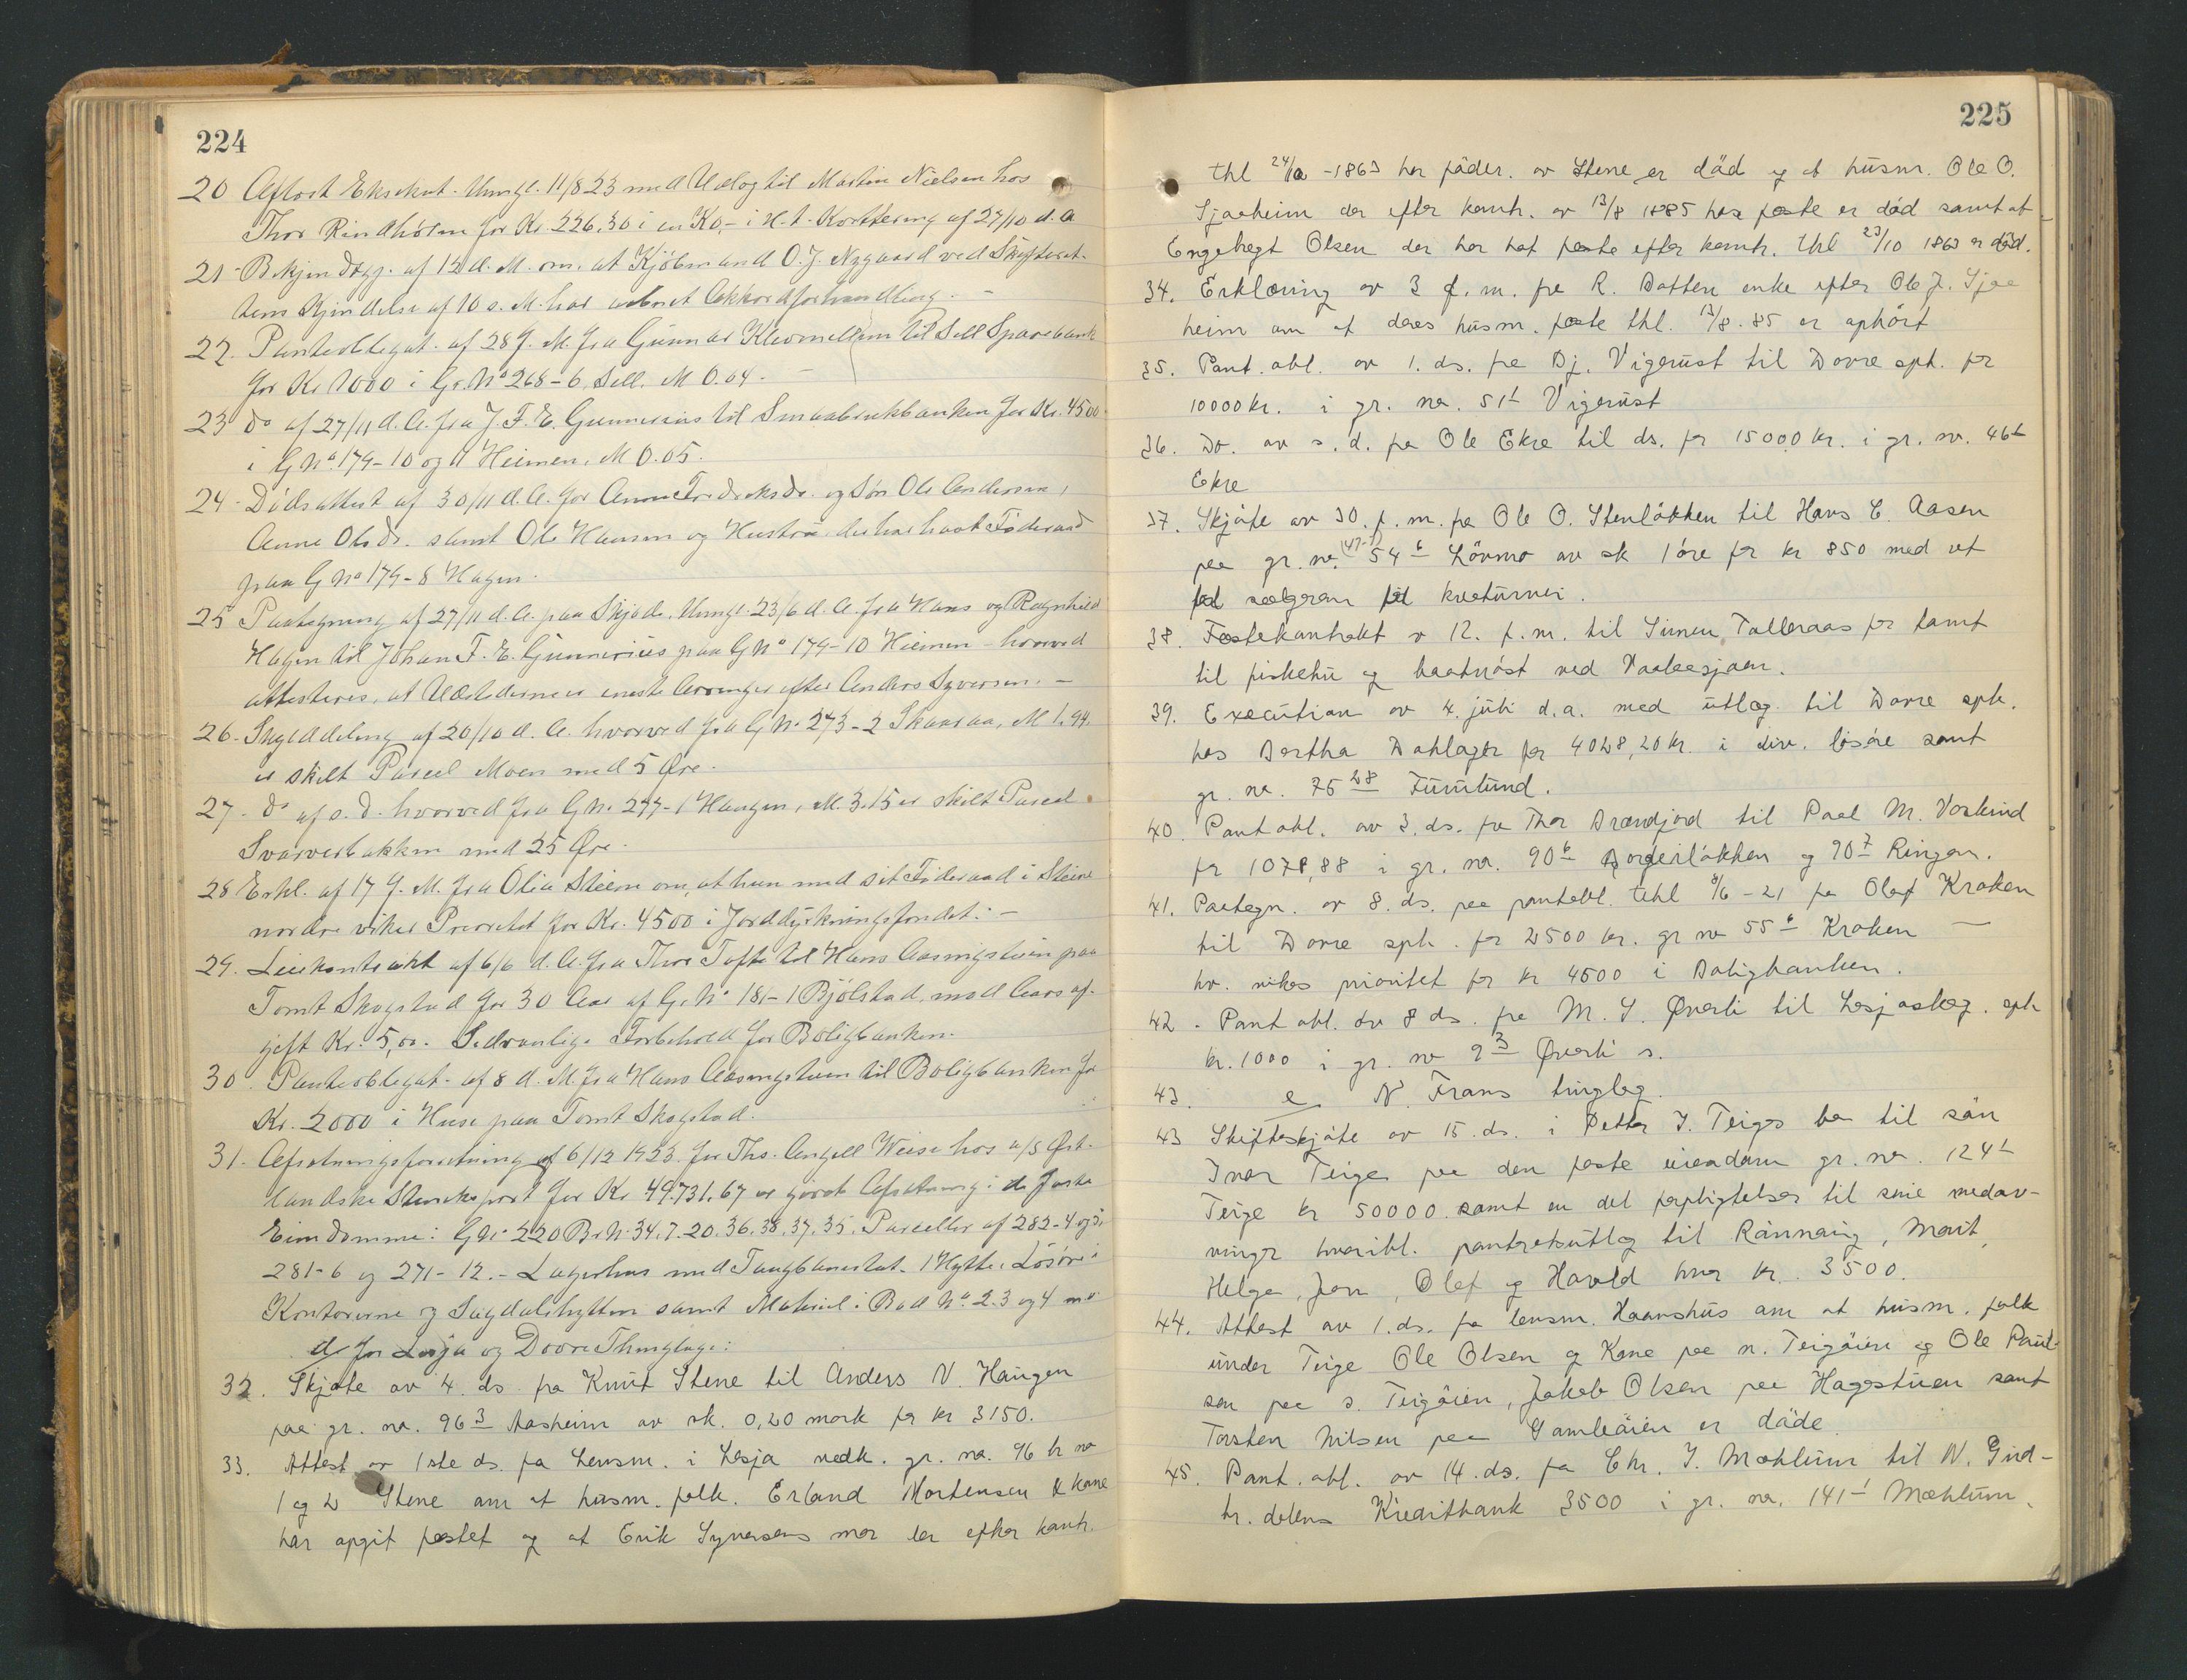 224
20 Aflyst Eksekut. thingl. 11/8 23 med Udlæg til Martin Nielsen hos
Thor Rindhølen for Kr. 226.30 i en Ko,- i H.t. Kvittering af 27/10 d. A
21 - Bekjendtgj. af 12 d. M. om, at Kjøbmand O. J. Nygaard ved Skifteret-
tens Kjendelse af 10 s. M. har aabnet Akkordforhandling. -
22. Panteobligat. af 28 f. M. fra Gunnar Klevmellem til Sell Sparebank
for Kr 1000 i Gr. No 268-6, Sell. M 0.04. -
23 do af 27/11 d. A. fra J. F. E. Gunnerius til Smaabrukbanken for Kr. 4500
i G No. 179-10 og 11 Heimen, M 0.05.
24 - Dødsattest af 30/11 d. A. for Anne Fredriksdr. og Søn Ole Andersen,
Anne Olsdr. samt Ole Hansen og Hustru der har havt Føderaad
paa G No 179-8 Hagen.
25 Paategning af 27/11 d. A. paa Skjøde, thingl. 23/6 d. A. fra Hans og Ragnhild
Hagen til Johan F. E. Gunnerius paa G No 179-10 Heimen - hvorved
attesteres, at Udstederne er eneste Arvinger efter Anders Syversen. -
26. Skylddeling af 20/10 d. A. hvorved fra G No 273-2 Skaaraa, M 1.94.
er skilt Parcel Moen med 5 Øre.
27 - do af s. d. hvorved fra G No. 277-1 Haugen, M. 3.15 er skilt Parcel
Svarverbakken med 25 Øre.
28 Erkl. af 17 f. M. fra Olia Steen om, at hun med sit Føderaad i Steine
nordre viker Prioritet for Kr. 4500 i Jorddyrkningsfondet. -
29. Leiekontrakt af 6/6 d. A. fra Thor Tofte til Hans Aasmigstuen paa
Tomt Skogstad for 30 Aar af G. No 181-1 Bjølstad, mod Aarsaf-
gift Kr. 5,00. Sedvanlige Forbehold for Boligbanken.
30. Panteobligat. af 8 d. M. fra Hans Aasmigstuen til Boligbanken for
Kr. 2000 i Huse paa Tomt Skogstad.
31. Afsetningsforretning af 6/12 1923. for Ths. Angell Weise hos a/s Øst-
landske Steneksport for Kr 49.731.67 er gjort Afsetning i de faste
Eiendomme: G No 220 Br. N. 34.7.20.36.38.37.35. Parceller af 282-4 og 5
281-6 og 271-12. - Lagerhus med Taugbanestat. 1 Hytte. Løsøre i
Kontorerne og Sagdalshytten samt Materiel i Brud No. 2.3 og 4 m. v.
d/ for Lesja og Dovre Thinglage:
32. Skjøte av 4. ds. fra Knut Stene til Anders N. Haugen
paa gr. nr. 96 3 Aasheim av sk. 0,20 mark for kr 3150.
33. Attest av 1ste ds. fra Lensm. i Lesja vedk. gr. no. 96 br no
1 og 2 Stene om at husm. folk. Erland Mortensen & kone
har opgit festet og at Erik Syversens mor der efter kontr.
225
thl 24/10 - 1863 har föder. av Stene er död og at husm. Ole O.
Sjaaheim der efter kontr. av 13/8 1885 har feste er död samt at
Engebregt Olsen der har hat feste efter kontr. thl 23/10 1863 er död.
34. Erklæring av 3 f. m. fra R. Botten enke efter Ole J. Sjaa
heim om at deres husm. feste thl. 13/8. 85 er ophört
35. Pant. obl. av 1. ds. fra Dj. Vigerust til Dovre spb. for
10000 kr. i gr. nr. 51 1 Vigerust
36. Do. av s. d. fra Ole Ekre til ds. for 15000 kr. i gr. nr. 46 1
Ekre
37. Skjöte av 30. f. m. fra Ole O. Stenlökken til Hans E. Aasen
paa gr. nr. (47-7) 54 6 Lövmo av sk 1 öre for kr 850 med ret
for sælgeren til kreaturvei.
38. Festekontrakt av 12. f. m. til Simen Talleraas for tomt
til fiskebu og baatnöst ved Vaalaasjöen.
39. Execution av 4. juli d. a. med utlæg til Dovre spb.
hos Bertha Dahlager for 4028,20 kr. i div. lösöre samt
gr. nr. 75 28 Furulund.
40. Pant obl. av 3. ds. fra Thor Brændjord til Paal M. Vorkind
for 1078,88 i gr. nr. 90 6 Borgerlökken og 90 7 Ringen.
41. Paategn. av 8. ds. paa pantobl. tehl 8/6 - 21 fra Olaf Kraken
til Dovre spb. for 2500 kr. gr nr 55 6 Kraken -
hv. vikes prioritet for kr 4500 i Boligbanken.
42. Pant obl. av 8 ds. fra M. J. Øverli til Lesjaskog. spb
kr. 1000 i gr. nr 9 3 Øverli s.
43. e. N. Frons tinglag.
43 Skifteskjöte av 15. ds. i Petter I. Teiges bo til sön
Ivar Teige paa den faste eiendom gr. nr. 124 1
Teige kr 50000 samt en del forpligtelser til sine medar-
vinger hvoribl. panteretsutlæg til Rönnaug, Marit,
Helge, Jon, Olaf og Harald hver kr. 3500.
44. Attest av 1. ds. fra lensm. Haanshus om at husm. folk
under Teige Ole Olsen og Kone paa n. Teigöien og Ole Paul-
sen paa s. Teigöien, Jakob Olsen paa Hagestuen samt
Torsten Nilsen paa Gamleöien er döde.
45. Pant. obl. av 14. ds. fra Chr. I. Mæhlum til N. Gud-
br. dalens Kreditbank 3500 i gr. nr. 141 1 Mæhlum.